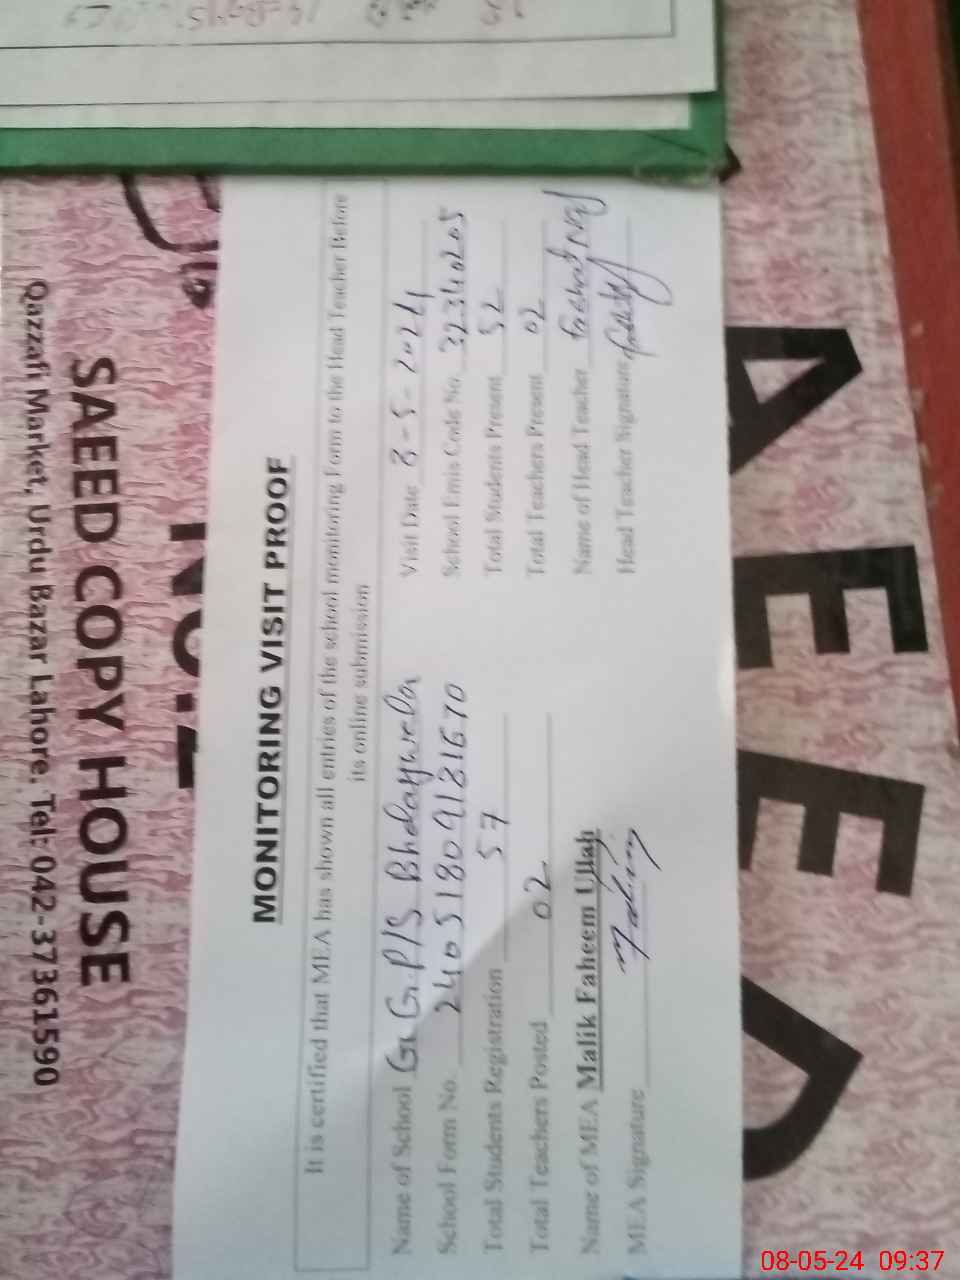 MONITORING VISIT PROOF
It is certified that MEA has shown all entries of the school monitoring Form to the Head Teacher Before
its online submission
Name of School G.G.P/S Bhelaywala Visit Date 8-5-2024
School Form No. 24051809181670 School Emis Code No. 32340205
Total Students Registration 57 Total Students Present 52
Total Teachers Posted 02 Total Teachers Present 02
Name of MEA Malik Faheem Ullah Name of Head Teacher
MEA Signature Head Teacher Signature
SAEED COPY HOUSE
Qazzafi Market, Urdu Bazar Lahore. Tel: 042-37361590
AEED
08-05-24 09:37